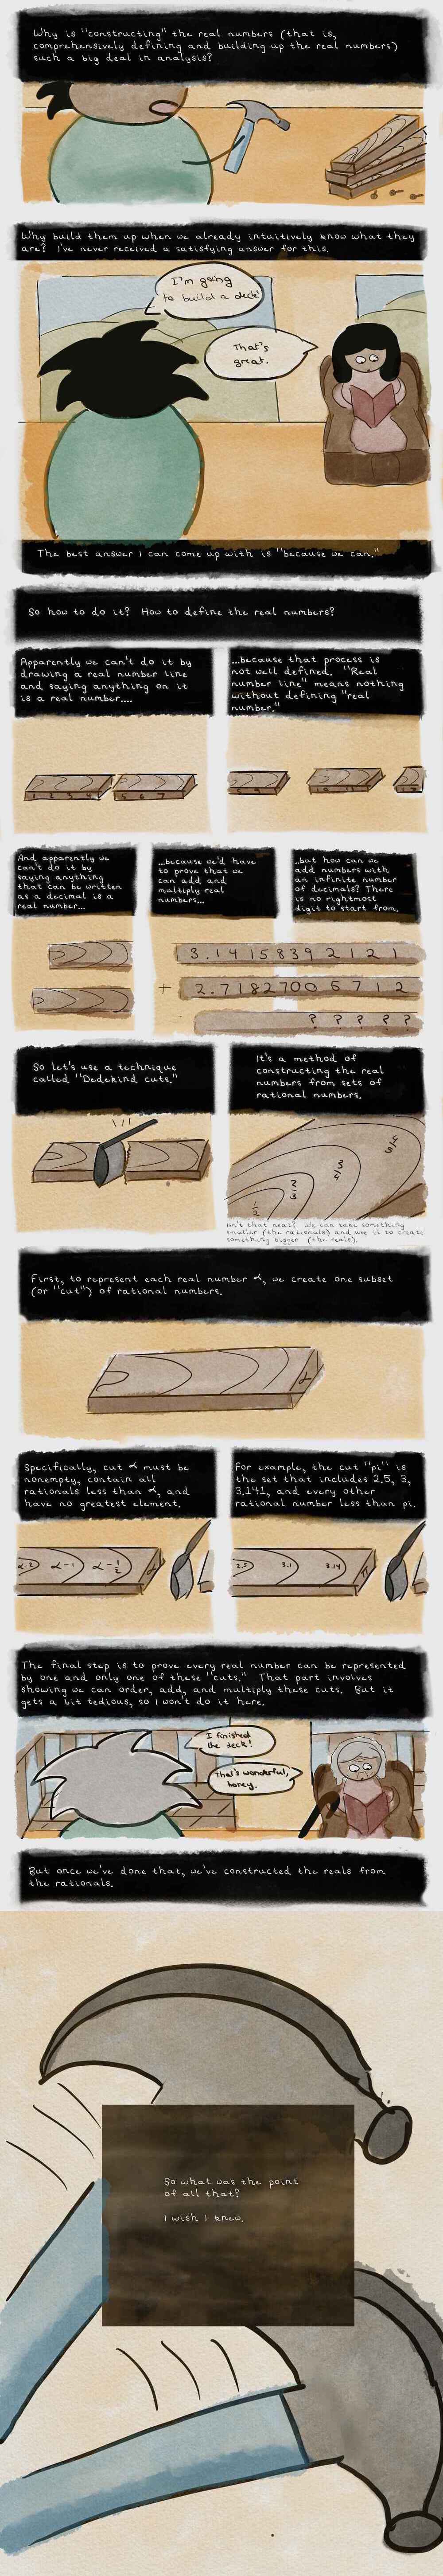 Why is "constructing" the real numbers (that is,
comprehensively defining and building up the real numbers)
such a big deal in analysis?
Why build them up when we already intuitively know what they
are? I've never received a satisfying answer for this.
I'm going
to build a deck!
That's
great.
The best answer I can come up with is "because we can."
So how to do it? How to define the real numbers?
Apparently we can't do it by
drawing a real number line
and saying anything on it
is a real number....
...because that process is
not well defined. "Real
number line" means nothing
without defining "real
number."
1 2 3 4 5 6 7
And apparently we
can't do it by
saying anything
that can be written
as a decimal is a
real number...
...because we'd have
to prove that we
can add and
multiply real
numbers...
...but how can we
add numbers with
an infinite number
of decimals? There
is no rightmost
digit to start from.
3.1415839 2 1 2 1
+ 2.7182700 6 7 1 2
? ? ? ? ?
So let's use a technique
called "Dedekind cuts."
It's a method of
constructing the real
numbers from sets of
rational numbers.
1/2 2/3 3/4 4/5
Isn't that neat? We can take something
smaller (the rationals) and use it to create
something bigger (the reals).
First, to represent each real number α, we create one subset
(or "cut") of rational numbers.
α
Specifically, cut α must be
nonempty, contain all
rationals less than α, and
have no greatest element.
For example, the cut "pi" is
the set that includes 2.5, 3,
3.141, and every other
rational number less than pi.
α-2 α-1 α-1/2 α
2.5 3.1 3.14 π
The final step is to prove every real number can be represented
by one and only one of these "cuts." That part involves
showing we can order, add, and multiply these cuts. But it
gets a bit tedious, so I won't do it here.
I finished
the deck!
That's wonderful,
honey.
But once we've done that, we've constructed the reals from
the rationals.
So what was the point
of all that?
I wish I knew.